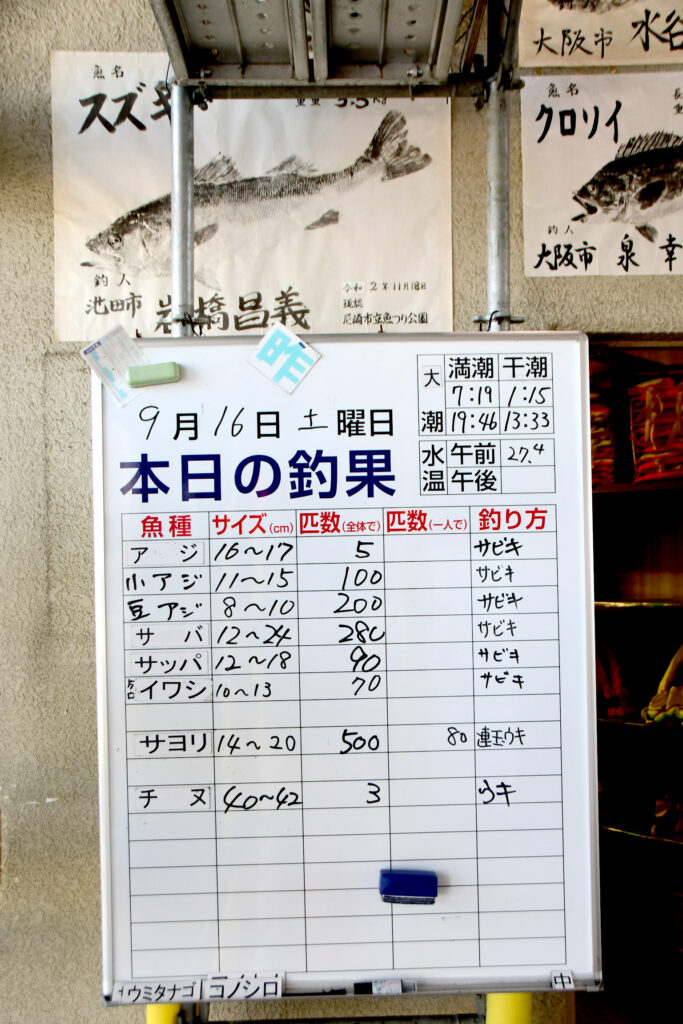 大阪市 水谷
魚名
スズキ
5.5kg
釣人
池田市 岩橋昌義
令和2年11月18日
現認
尼崎市立魚つり公園
魚名
クロソイ
釣人
大阪市 泉 幸
昨
9月16日 土曜日
本日の釣果
大潮 満潮 干潮
7:19 1:15
19:46 13:33
水温 午前 27.4
午後
魚種 サイズ(cm) 匹数(全体で) 匹数(一人で) 釣り方
アジ 16〜17 5 サビキ
小アジ 11〜15 100 サビキ
豆アジ 8〜10 200 サビキ
サバ 12〜24 280 サビキ
サッパ 12〜18 90 サビキ
イワシ 10〜13 70 サビキ
サヨリ 14〜20 500 80 連玉ウキ
チヌ 40〜42 3 ウキ
ウミタナゴ コノシロ
中